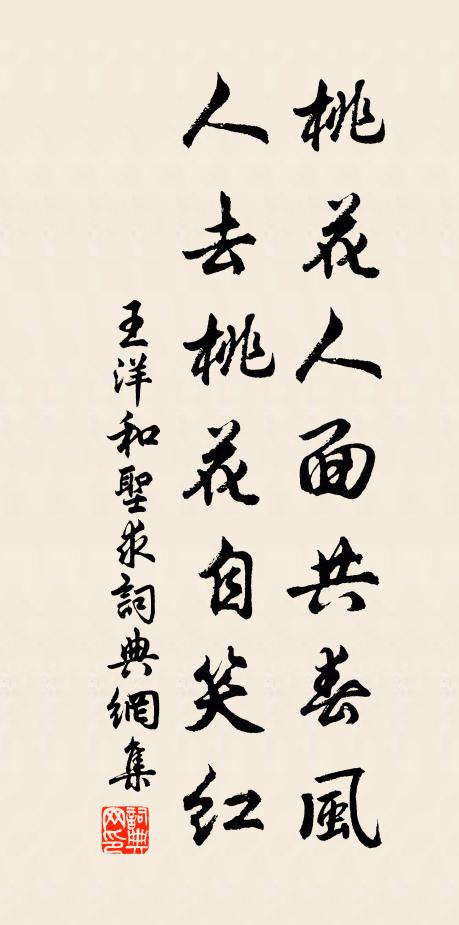 桃花人面共春風
人去桃花自笑紅
王洋和聖求詞典網集
詞典網印